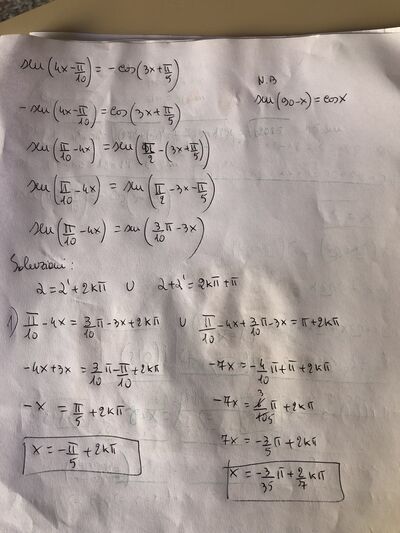 sen(4x-π/10) = -cos(3x+π/5)
N.B
sen(90-x)=cosx
-sen(4x-π/10)=cos(3x+π/5)
sen(π/10-4x)=sen(π/2-(3x+π/5))
sen(π/10-4x) = sen(π/2-3x-π/5)
sen(π/10-4x)=sen(3/10π-3x)
Soluzioni:
α=α'+2kπ ∪ α+α'=2kπ+π
1) π/10-4x=3/10π-3x+2kπ ∪ π/10-4x+3/10π-3x=π+2kπ
-4x+3x=3/10π-π/10+2kπ
-7x=-4/10π+π+2kπ
-x=π/5+2kπ
-7x=6 3/10 5π+2kπ
7x=-3/5π+2kπ
x=-π/5+2kπ
x=-3/35π+2/7kπ